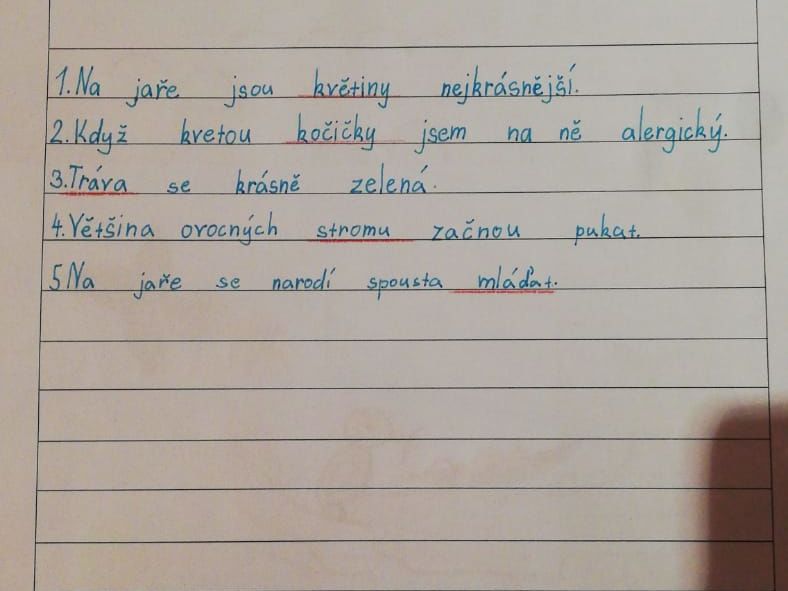 1.Na jaře jsou květiny nejkrásnější.
2.Když kvetou kočičky jsem na ně alergický.
3.Tráva se krásně zelená.
4.Většina ovocných stromu začnou pukat.
5Na jaře se narodí spousta mláďat.